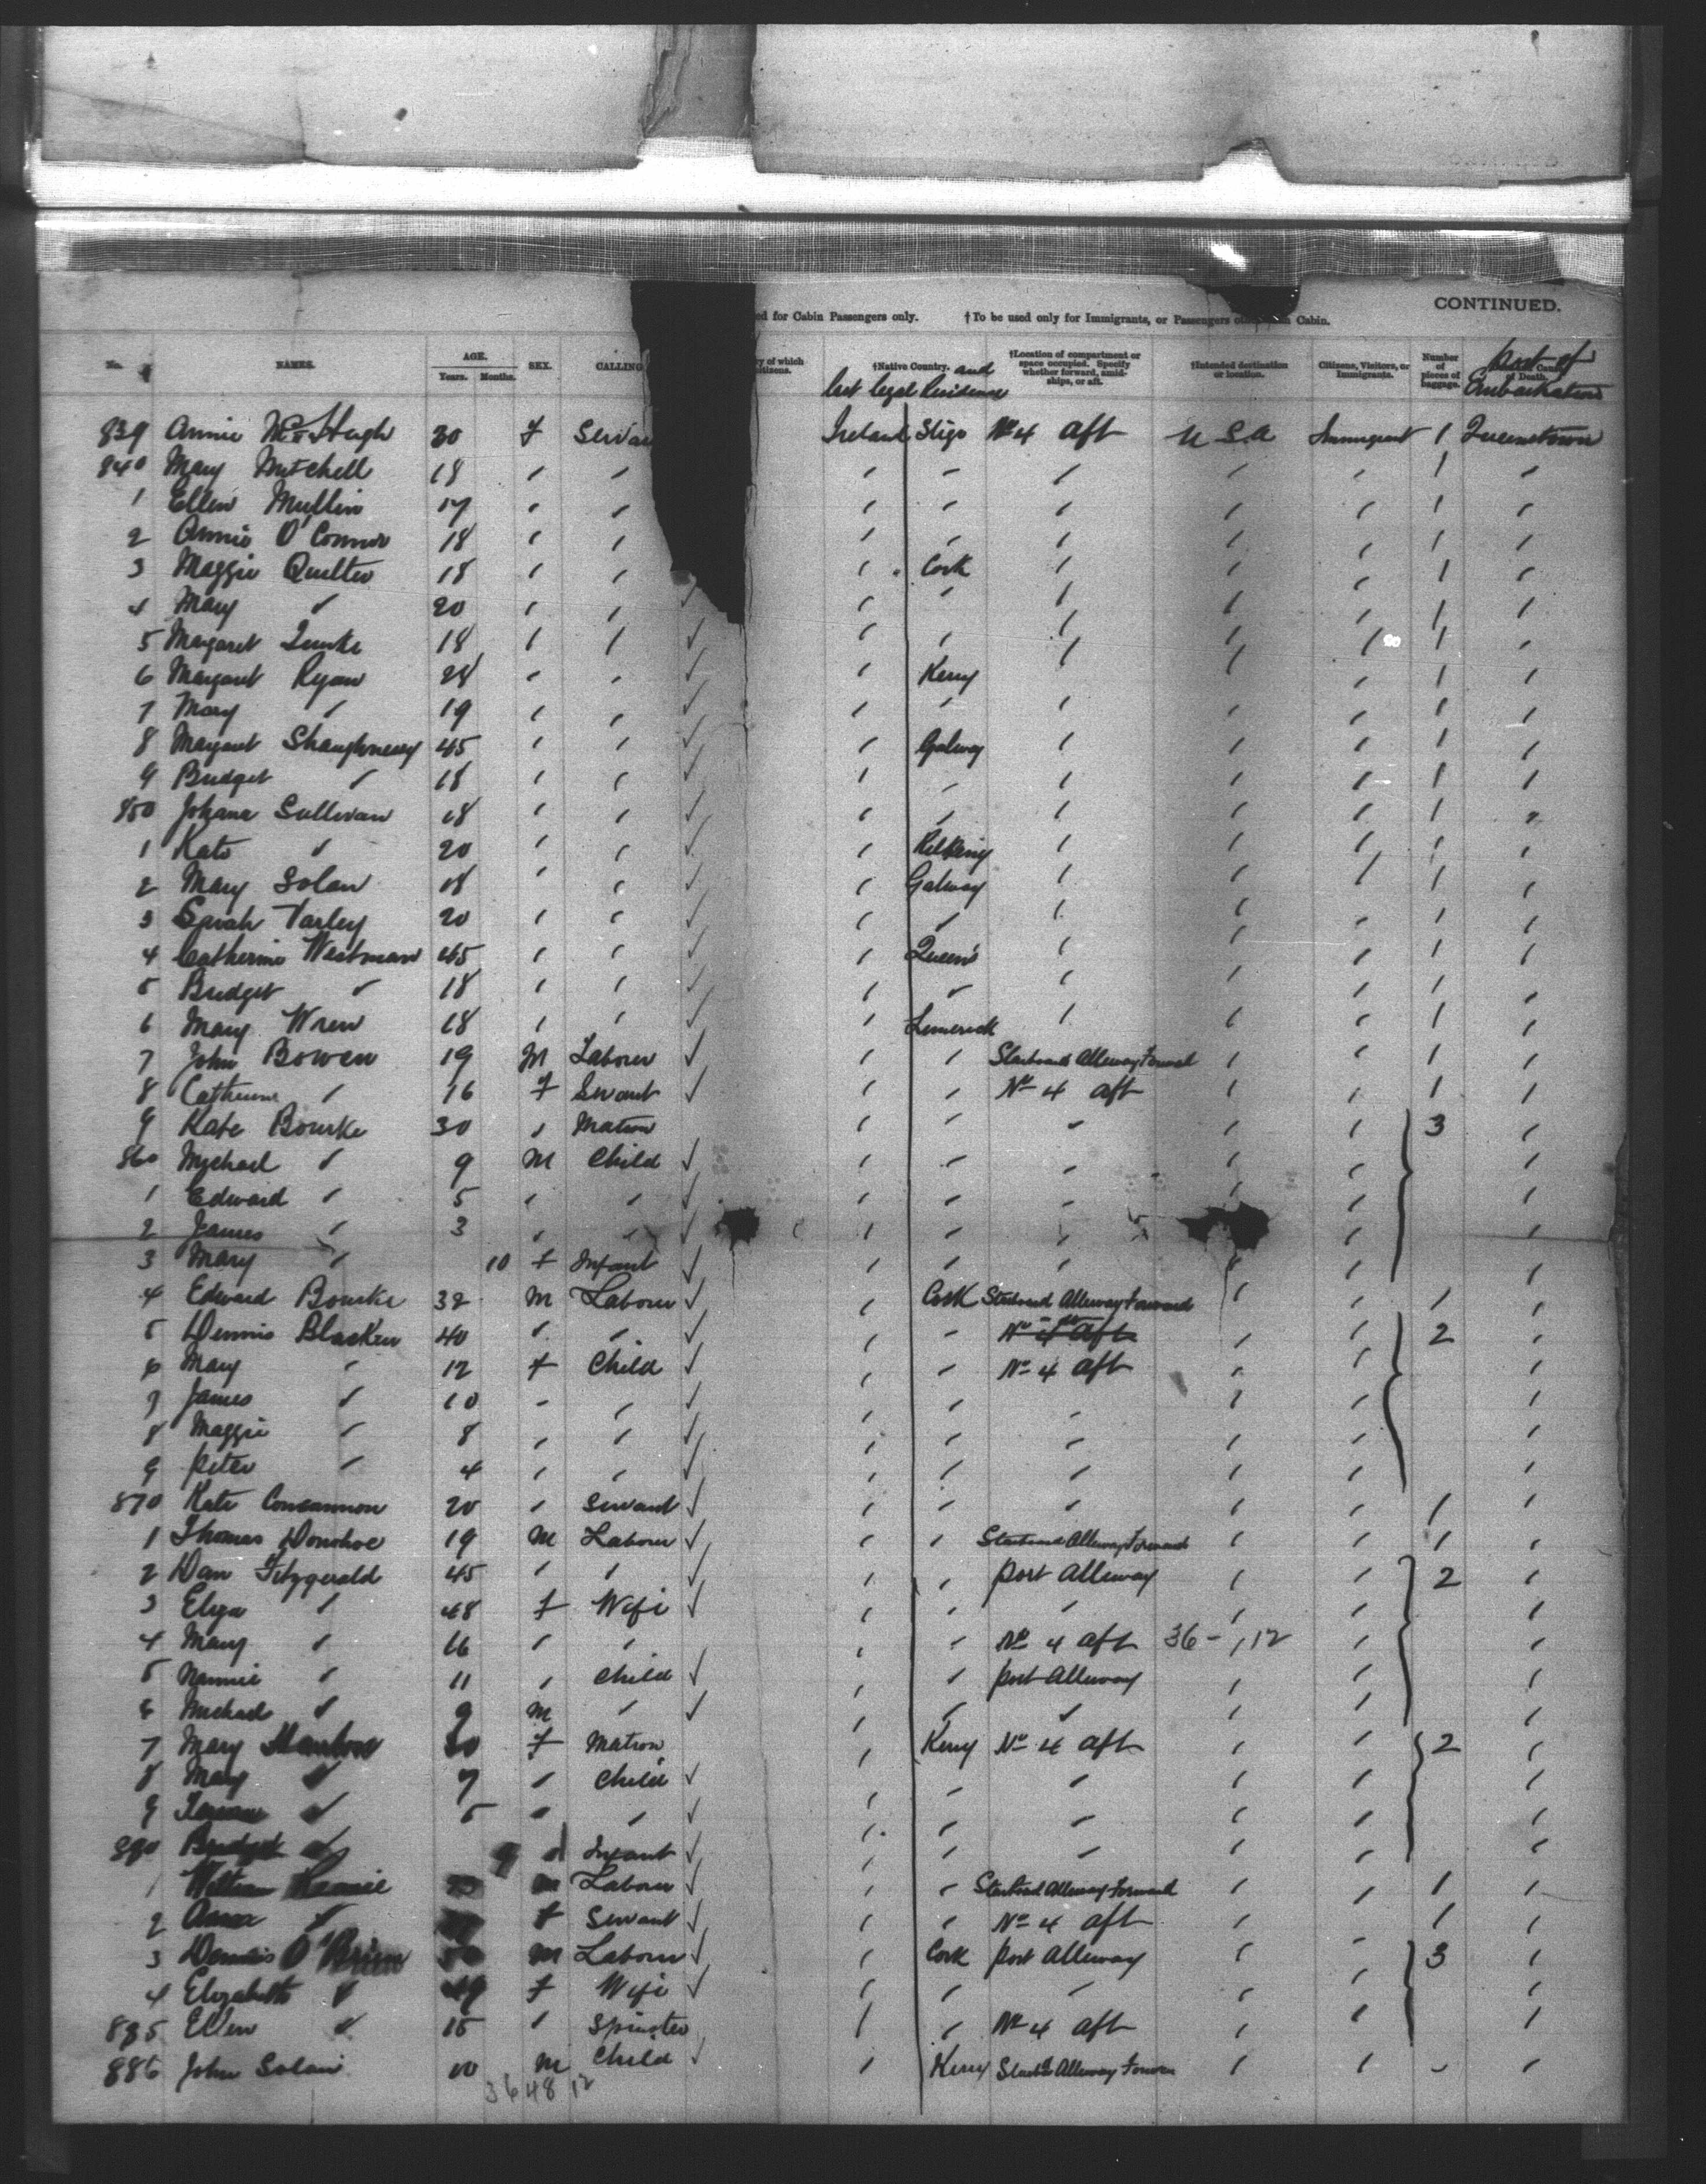 CONTINUED.
ed for Cabin Passengers only. †To be used only for Immigrants, or Passengers Cabin.
No. NAMES. AGE. Years. Months. SEX. CALLING y of which itizens. †Native Country. and last legal Residence †Location of compartment or space occupied. Specify whether forward, amidships, or aft. †Intended destination or location. Citizens, Visitors, or Immigrants. Number of pieces of baggage. port of Embarkation
839 Annie McHugh 30 f Serva Ireland Sligo No 4 aft U S A Immigrant 1 Queenstown
840 Mary Mitchell 18 " " " " " " " 1 "
1 Ellen Mullin 17 " " " " " " " 1 "
2 Annie O'Connor 18 " " " " " " " 1 "
3 Maggie Quilter 18 " " " Cork " " " 1 "
4 Mary " 20 " " " " " " " 1 "
5 Margaret 18 " " " " " " " 1 "
6 Margaret Ryan 28 " " " Kerry " " " 1 "
7 Mary " 19 " " " " " " " 1 "
8 Margaret Shaughnessy 45 " " " Galway " " " 1 "
9 Bridget " 18 " " " " " " " 1 "
850 Johana Sullivan 18 " " " " " " " 1 "
1 Kate " 20 " " " " " " 1 "
2 Mary Solan 18 " " " Galway " " " 1 "
3 Sarah Varley 20 " " " " " " " 1 "
4 Catherine Westman 45 " " " Queen's " " " 1 "
5 Bridget " 18 " " " " " " " 1 "
6 Mary Wren 18 " " " Limerick " " " 1 "
7 John Bowen 19 M Labourer " " Starboard Alleway Forward " " 1 "
8 Catherine " 16 f Servant " " No 4 aft " " 1 "
9 Kate Bourke 30 " Matron " " " " " 3 "
860 Michael " 9 M Child " " " " " "
1 Edward " 5 " " " " " " " "
2 James " 3 " " " " " " " "
3 Mary " 10 f Infant " " " " " "
4 Edward Bourke 32 M Labourer " Cork Starboard Alleway Forward " " 1 "
5 Dennis Blacken 40 " " " " No 4 aft " " 2 "
6 Mary " 12 f Child " " No 4 aft " " "
7 James " 10 " " " " " " " "
8 Maggie " 8 " " " " " " " "
9 Peter " 4 " " " " " " " "
870 Kate Concannon 20 " Servant " " " " " 1 "
1 Thomas Donohoe 19 M Labourer " " Starboard Alleway Forward " " 1 "
2 Dan Fitzgerald 45 " " " " port Alleway " " 2 "
3 Eliza " 48 f Wife " " " " " "
4 Mary " 16 " " " " No 4 aft 36 - , 12 " "
5 Nannie " 11 " Child " " port Alleway " " "
6 Michael " 9 M " " " " " " "
7 Mary 30 f Matron " Kerry No 4 aft " " 2 "
8 Mary " 7 " Child " " " " " "
9 " 5 " " " " " " " "
880 Bridget " 9 " Infant " " " " " "
1 William M Labourer " " Starboard Alleway Forward " " 1 "
2 " f Servant " " No 4 aft " " 1 "
3 Dennis O'Brien 50 M Labourer " Cork port Alleway " " 3 "
4 Elizabeth " 49 f Wife " " " " " "
885 Ellen " 15 " Spinster " " No 4 aft " " "
886 John Solan 10 M Child " Kerry Starbd Alleway Forward " " "
36 48 12